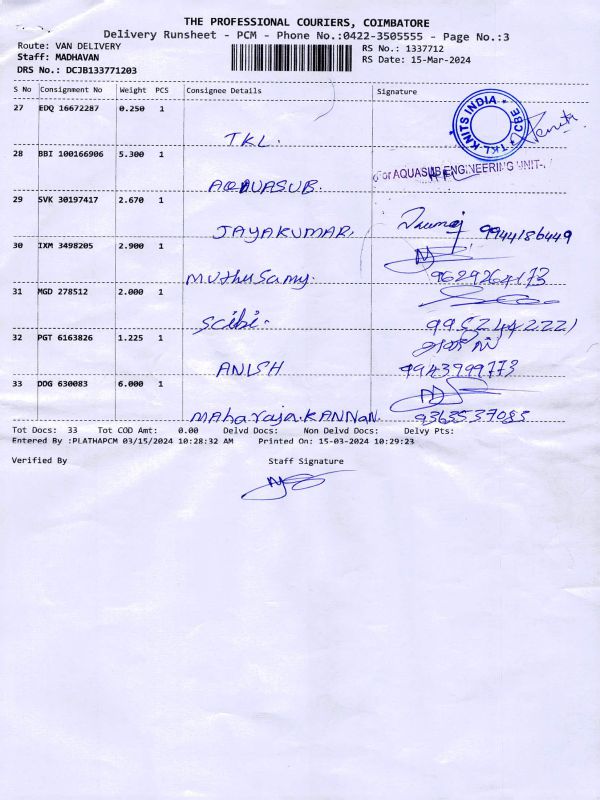 THE PROFESSIONAL COURIERS, COIMBATORE
Delivery Runsheet - PCM - Phone No.:0422-3505555 - Page No.:3
Route: VAN DELIVERY RS No.: 1337712
Staff: MADHAVAN RS Date: 15-Mar-2024
DRS No.: DCJB133771203
S No Consignment No Weight PCS Consignee Details Signature
27 EDQ 16672287 0.250 1 TKL. TKL KNITS INDIA * CBE *
28 BBI 100166906 5.300 1 AQUASUB. For AQUASUB ENGINEERING UNIT-
29 SVK 30197417 2.670 1 JAYAKUMAR. 9944186449
30 IXM 3498205 2.900 1 Muthusamy. 9629264173
31 MGD 278512 2.000 1 Scibi. 9952442221
32 PGT 6163826 1.225 1 ANISH 9943999773
33 DDG 630083 6.000 1 Maharaja.KANNAN. 9363537085
Tot Docs: 33 Tot COD Amt: 0.00 Delvd Docs: Non Delvd Docs: Delvy Pts:
Entered By :PLATHAPCM 03/15/2024 10:28:32 AM Printed On: 15-03-2024 10:29:23
Verified By Staff Signature